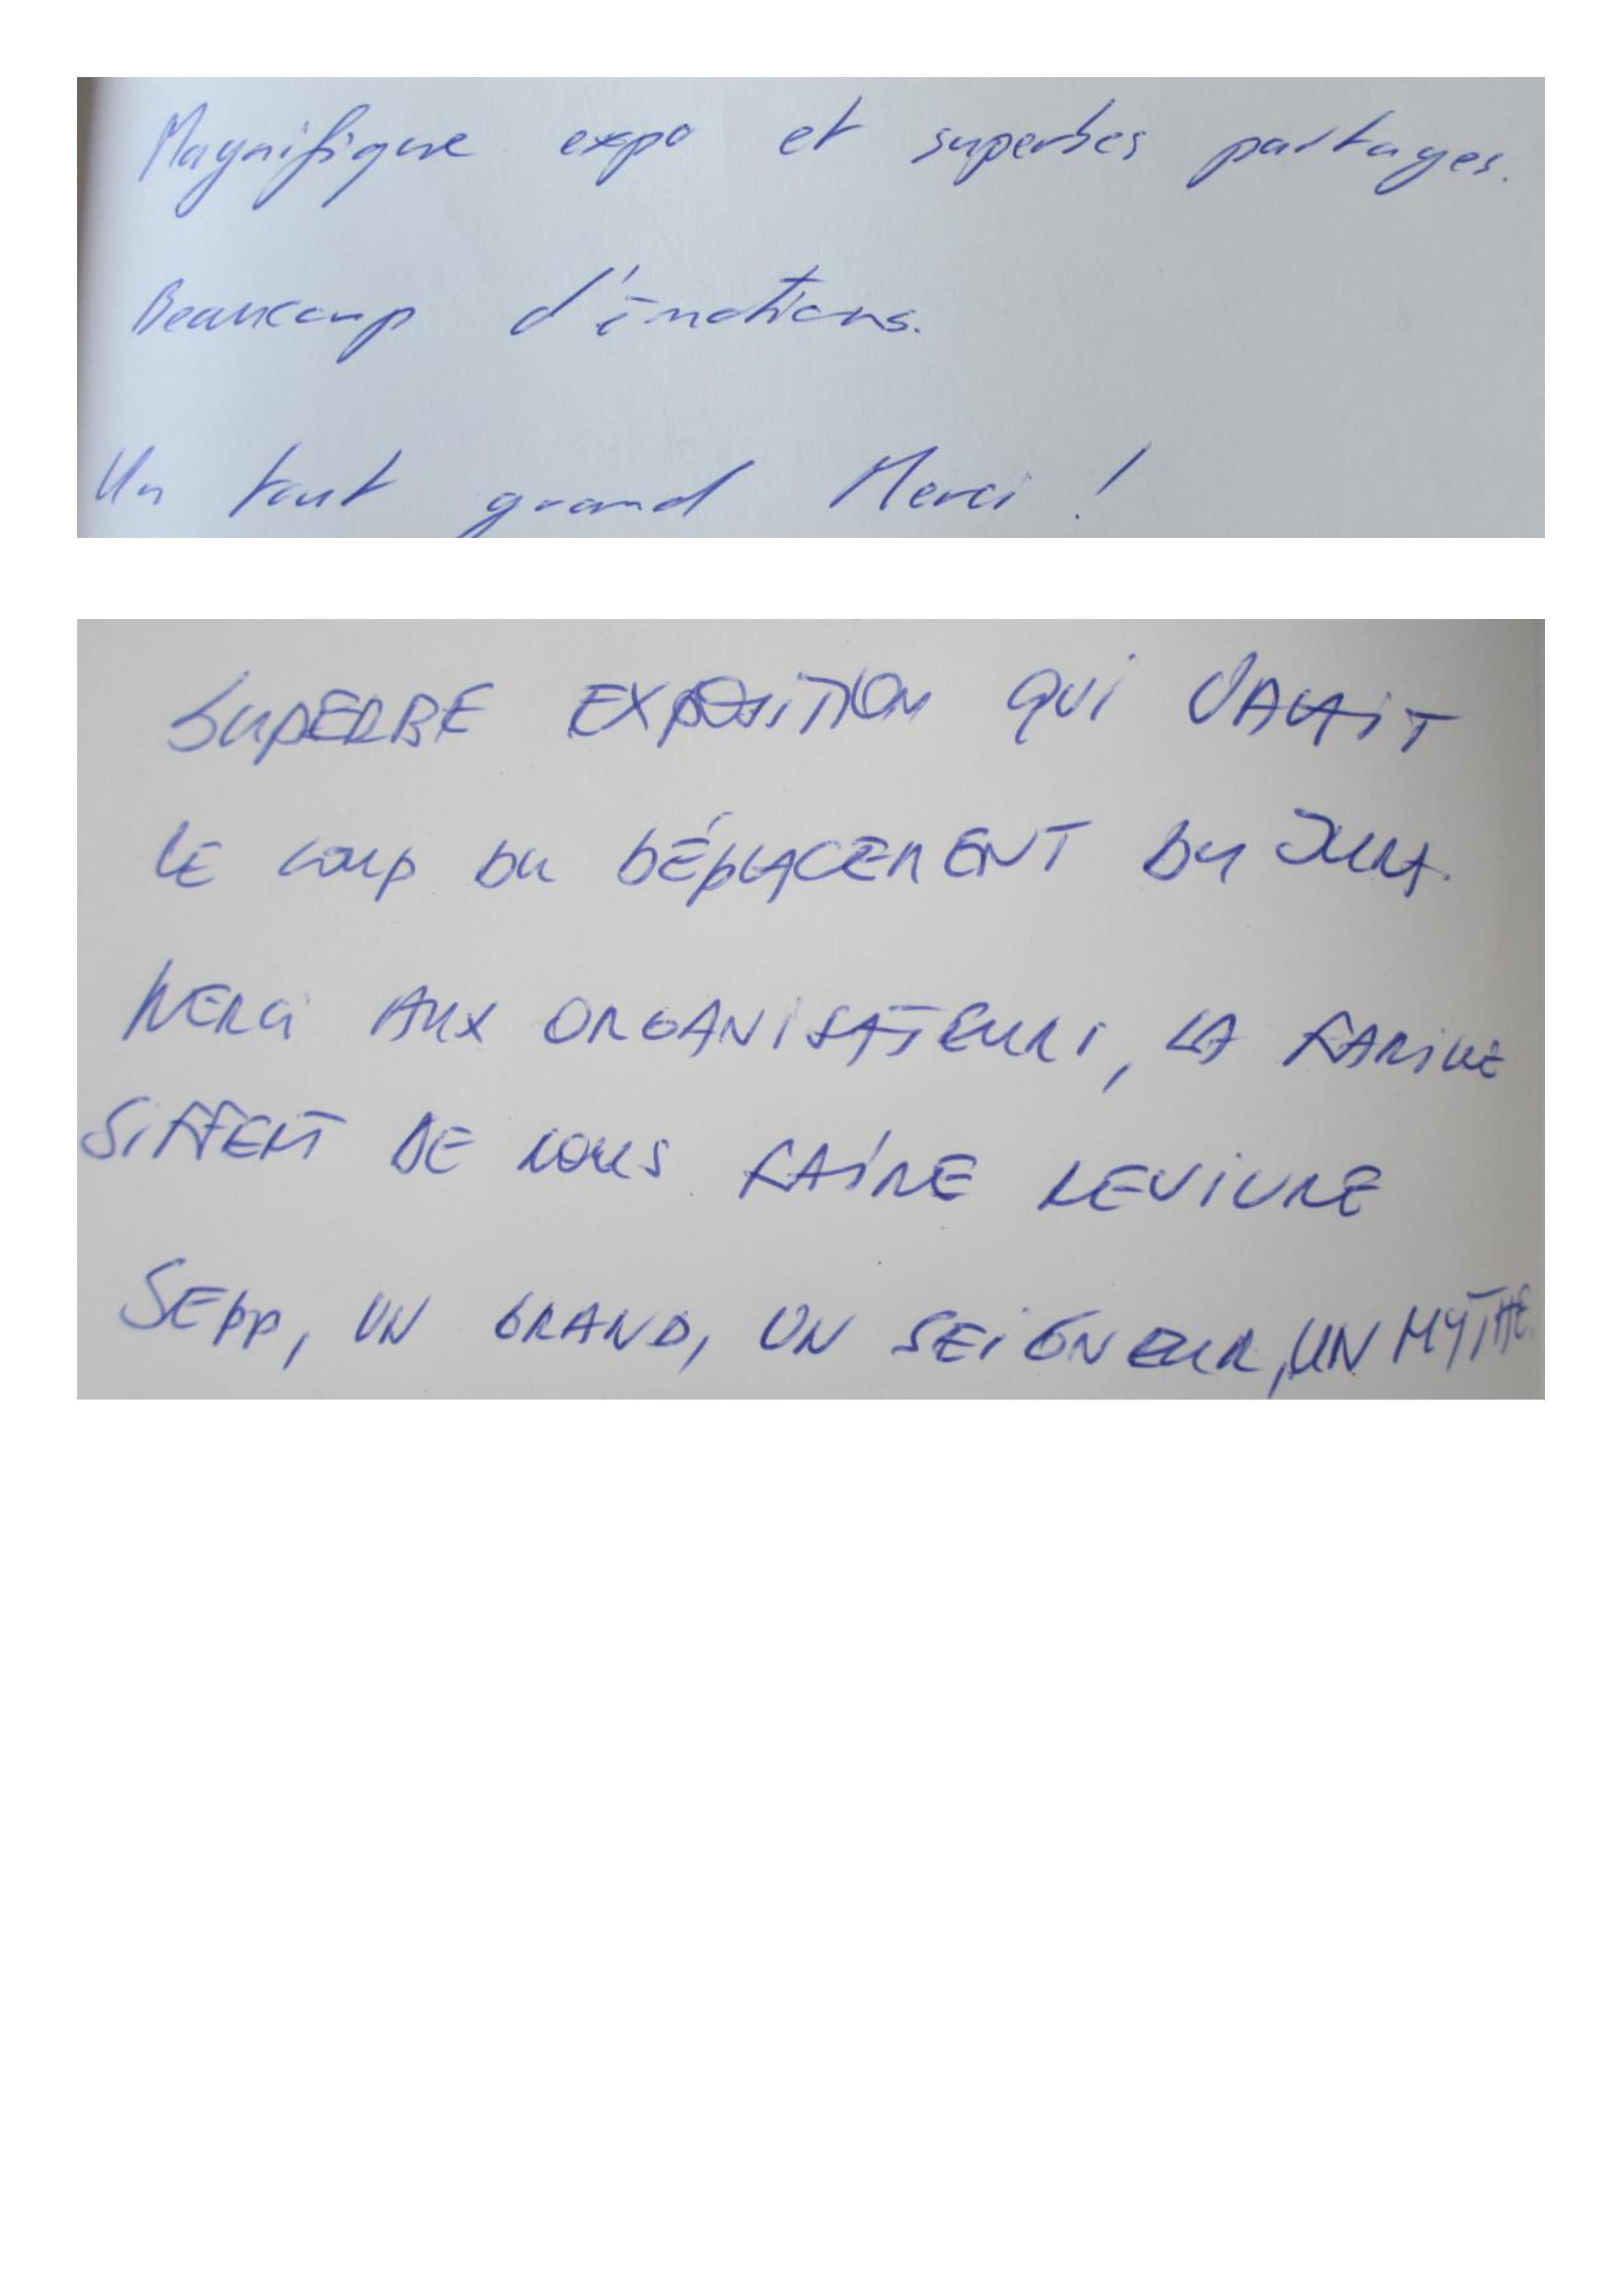 Magnifique expo et superbes partages.
Beaucoup d'émotions.
Un tout grand Merci !
SUPERBE EXPOSITION QUI VALAIT
LE COUP DU DÉPLACEMENT DU JURA.
MERCI AUX ORGANISATEURS, LA FAMILLE
SIFFERT DE NOUS FAIRE REVIVRE
SEPP, UN GRAND, UN SEIGNEUR, UN MYTHE